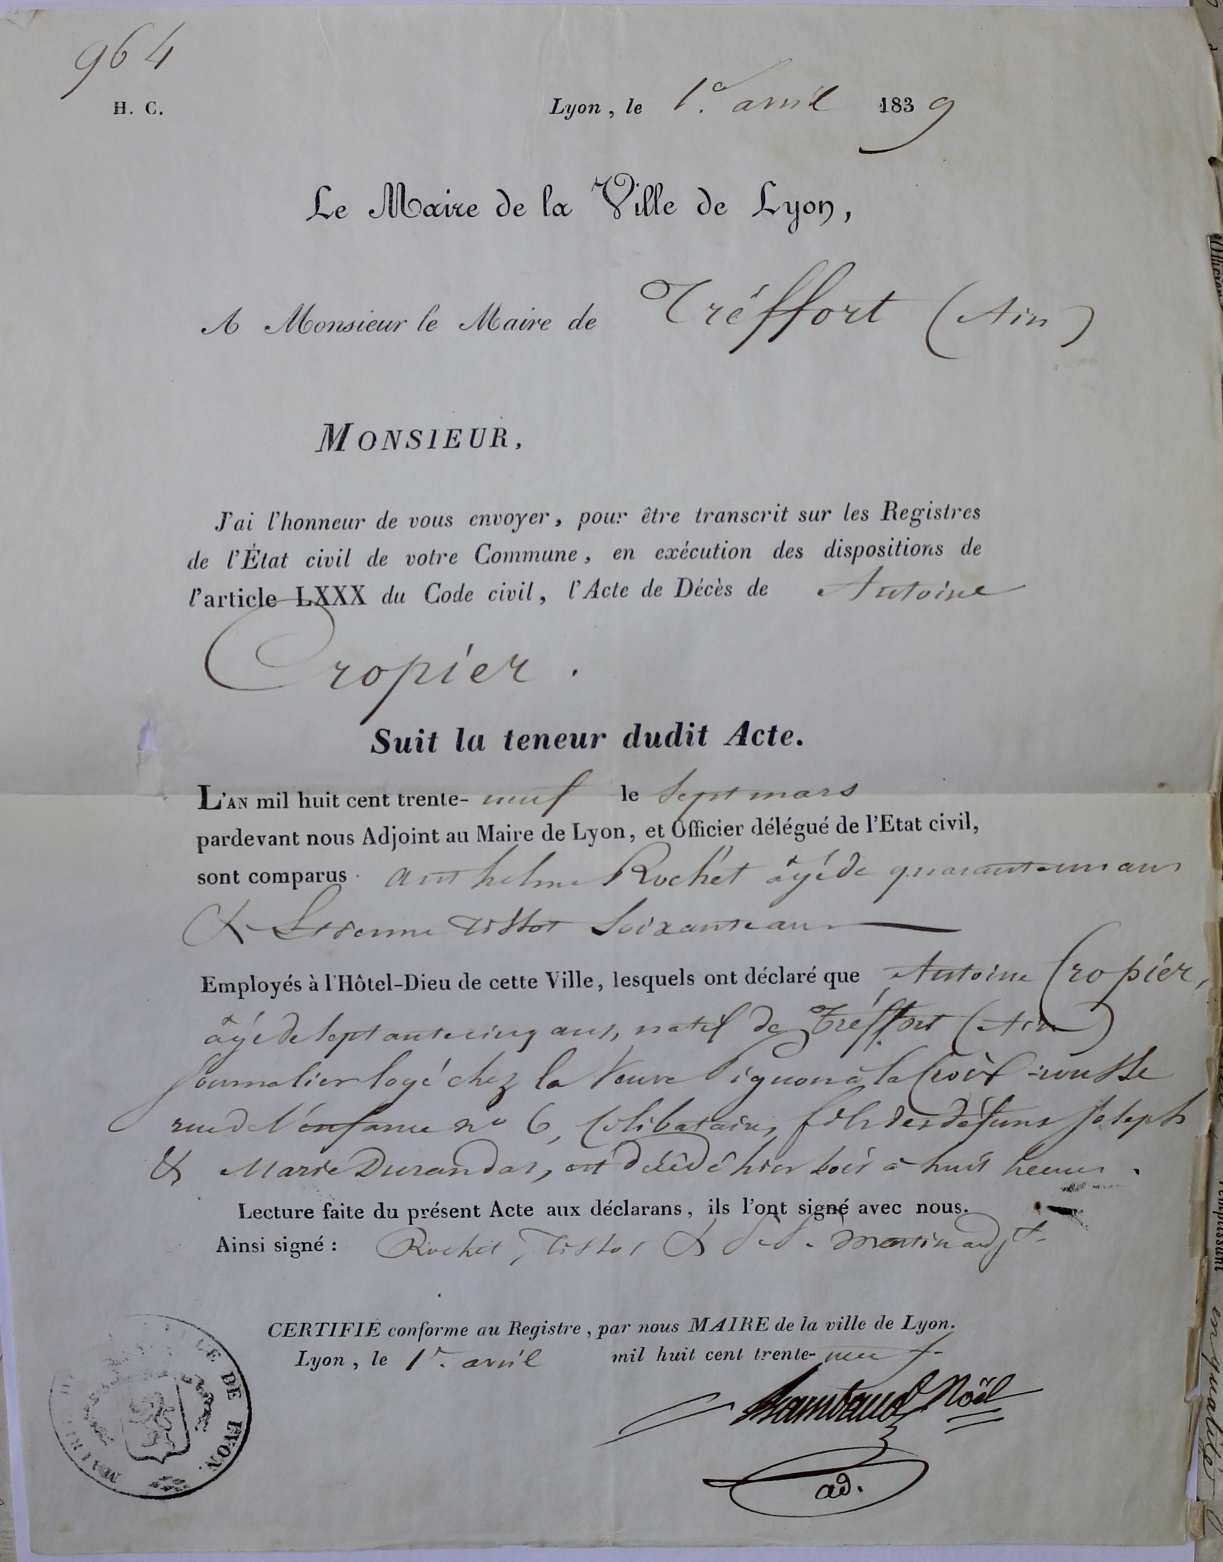 964
H. C.
Lyon, le 1er avril 1839
Le Maire de la Ville de Lyon,
A Monsieur le Maire de Tréffort (Ain)
MONSIEUR,
J'ai l'honneur de vous envoyer, pour être transcrit sur les Registres
de l'État civil de votre Commune, en exécution des dispositions de
l'article LXXX du Code civil, l'Acte de Décès de Antoine
Cropier.
Suit la teneur dudit Acte.
L'AN mil huit cent trente-neuf le sept mars
pardevant nous Adjoint au Maire de Lyon, et Officier délégué de l'Etat civil,
sont comparus anthelme Rochet âgé de quarante un ans
& Etienne Tissot soixante ans
Employés à l'Hôtel-Dieu de cette Ville, lesquels ont déclaré que Antoine Cropier,
âgé de septante cinq ans, natif de Tréffort (Ain)
Journalier logé chez la Veuve Pignon à la Croix-rousse
rue de l'enfance no 6, Célibataire, fils des défuns Joseph
& Marie Durandas, est décédé hier soir à huit heures.
Lecture faite du présent Acte aux déclarans, ils l'ont signé avec nous.
Ainsi signé : Rochet, Tissot & Martin adjt
CERTIFIÉ conforme au Registre, par nous MAIRE de la ville de Lyon.
Lyon, le 1er avril mil huit cent trente-neuf
Rambaud Noël
ad.
MAIRIE DE LA VILLE DE LYON.
en qualité